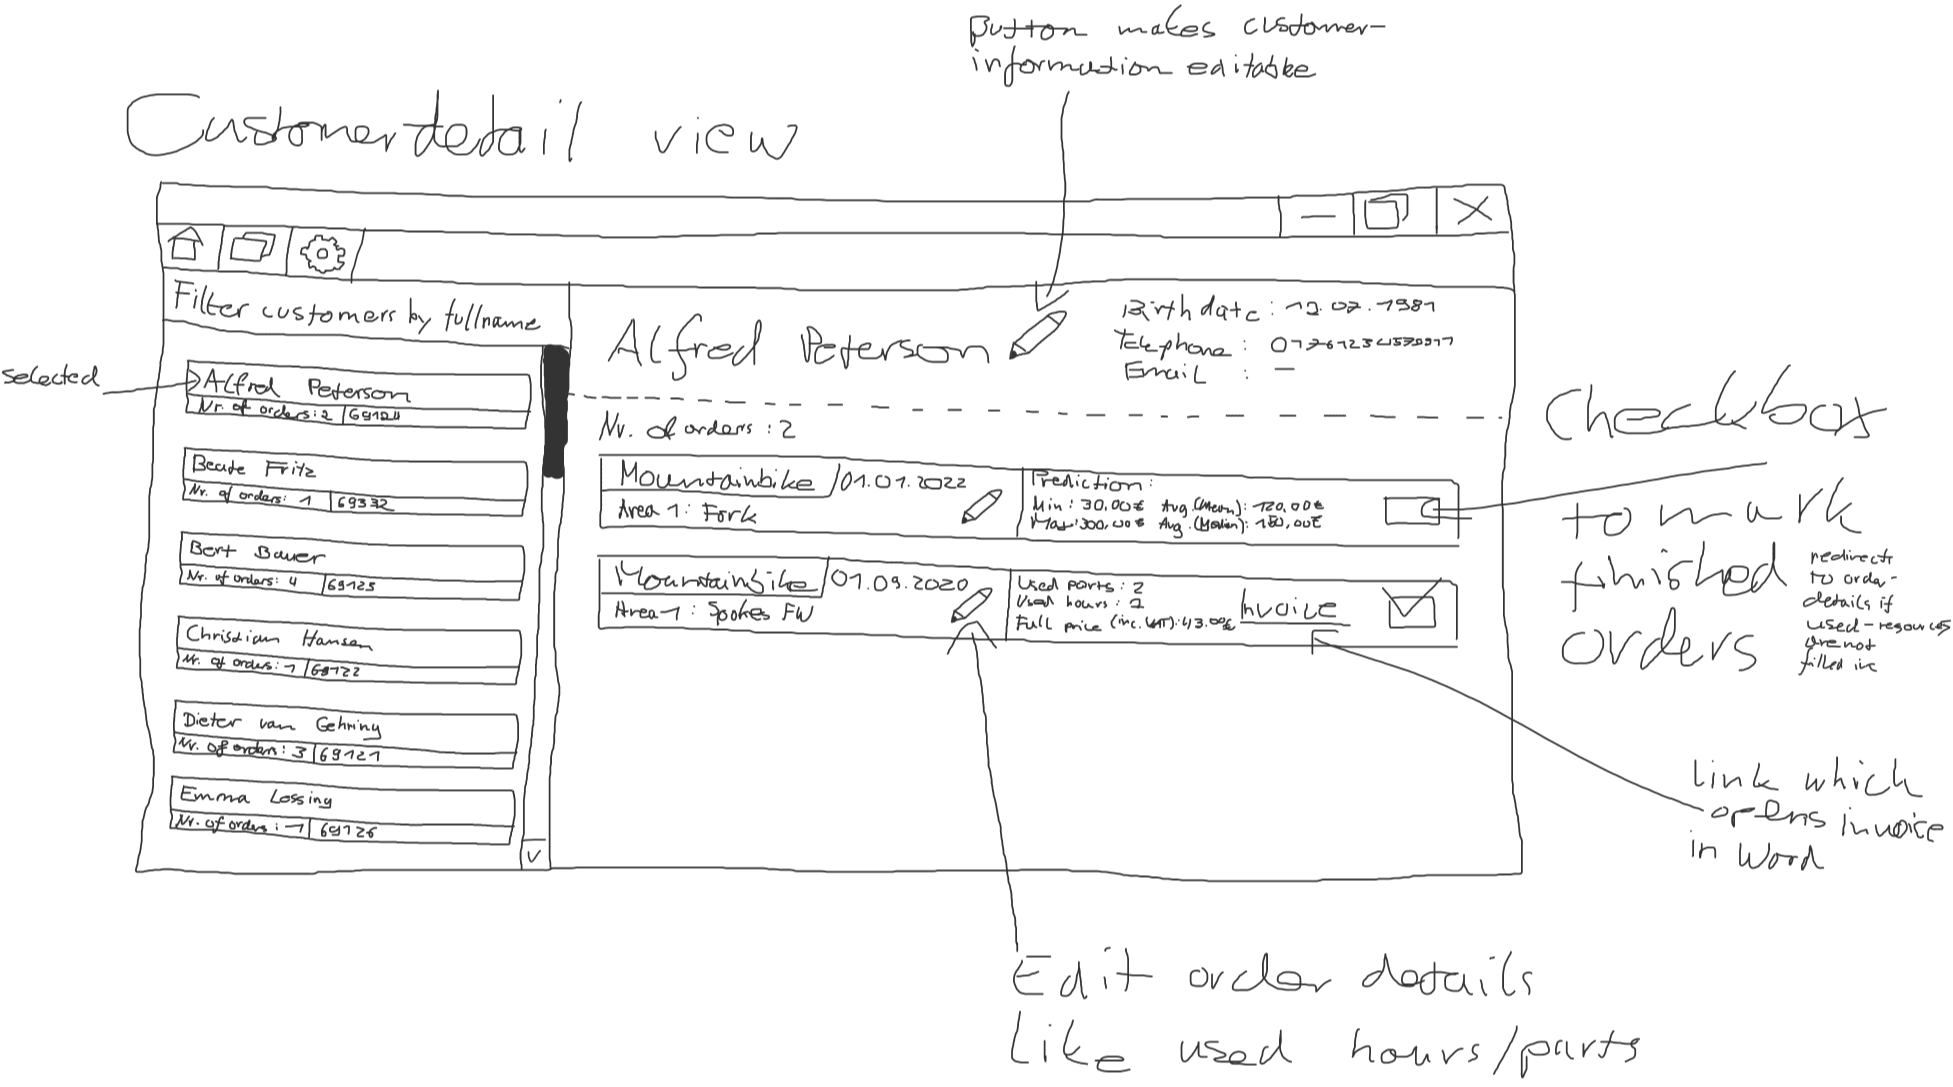 Button makes customer-
information editable
Customerdetail view
Filter customers by fullname
selected
Alfred Peterson
Nr. of orders: 2 69124
Beate Fritz
Nr. of orders: 1 69332
Bert Bauer
Nr. of orders: 4 69123
Christian Hansen
Nr. of orders: 1 69122
Dieter van Gehring
Nr. of orders: 3 69121
Emma Lossing
Nr. of orders: 1 69126
Alfred Peterson
Birthdate: 12.07.1981
Telephone:
Email : -
Nr. of orders: 2
Mountainbike 01.01.2022
Area 1: Fork
Prediction:
Min: 30,00€ Avg.(Mean): 120,00€
Max: 300,00€ Avg.(Median): 150,00€
Mountainbike 01.09.2020
Area 1: Spokes FW
Used parts: 2
Used hours: 2
Full price (inc. VAT): 43.00€
Invoice
Checkbox
to mark
finished
orders
redirects
to order-
details if
used-resources
are not
filled in
link which
opens invoice
in Word
Edit order details
like used hours/parts